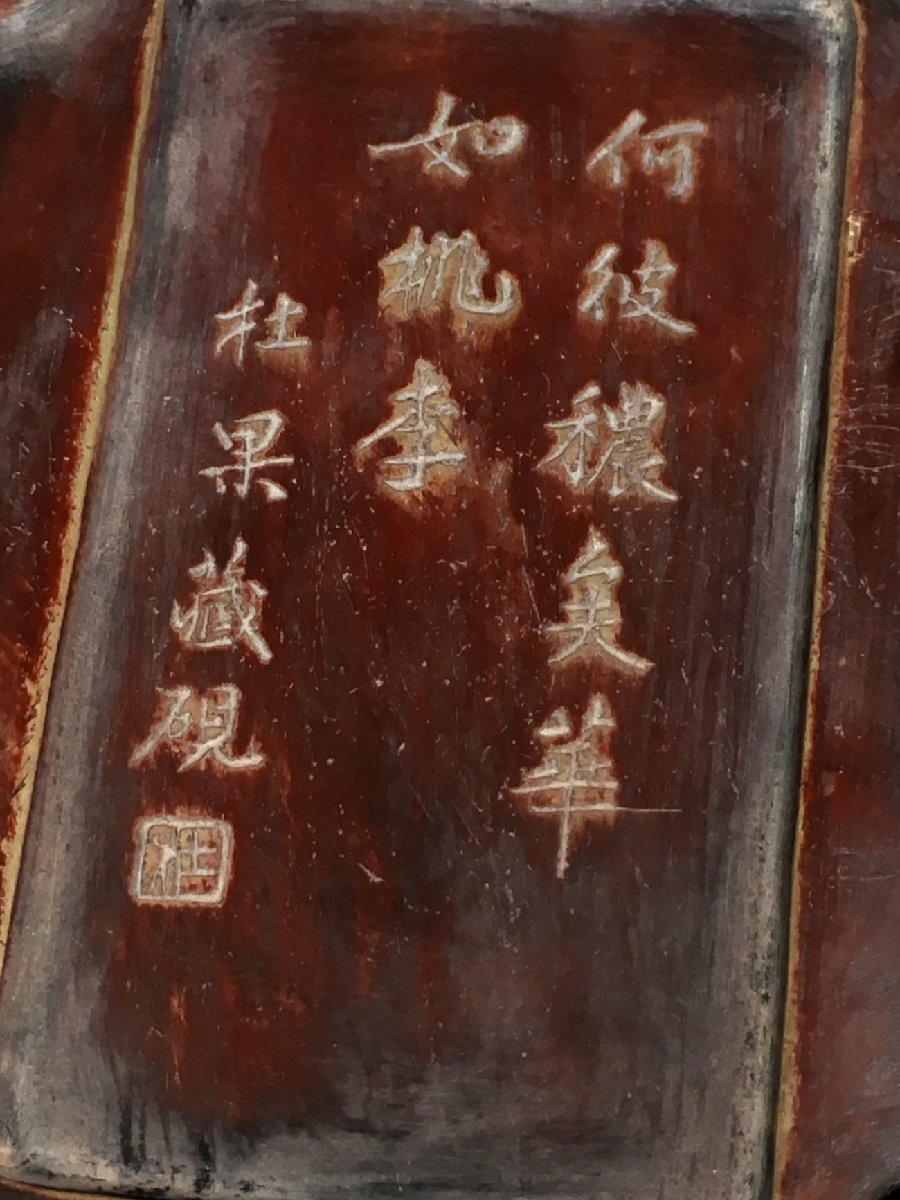 何彼穠矣華
如桃李
杜果藏硯
杜